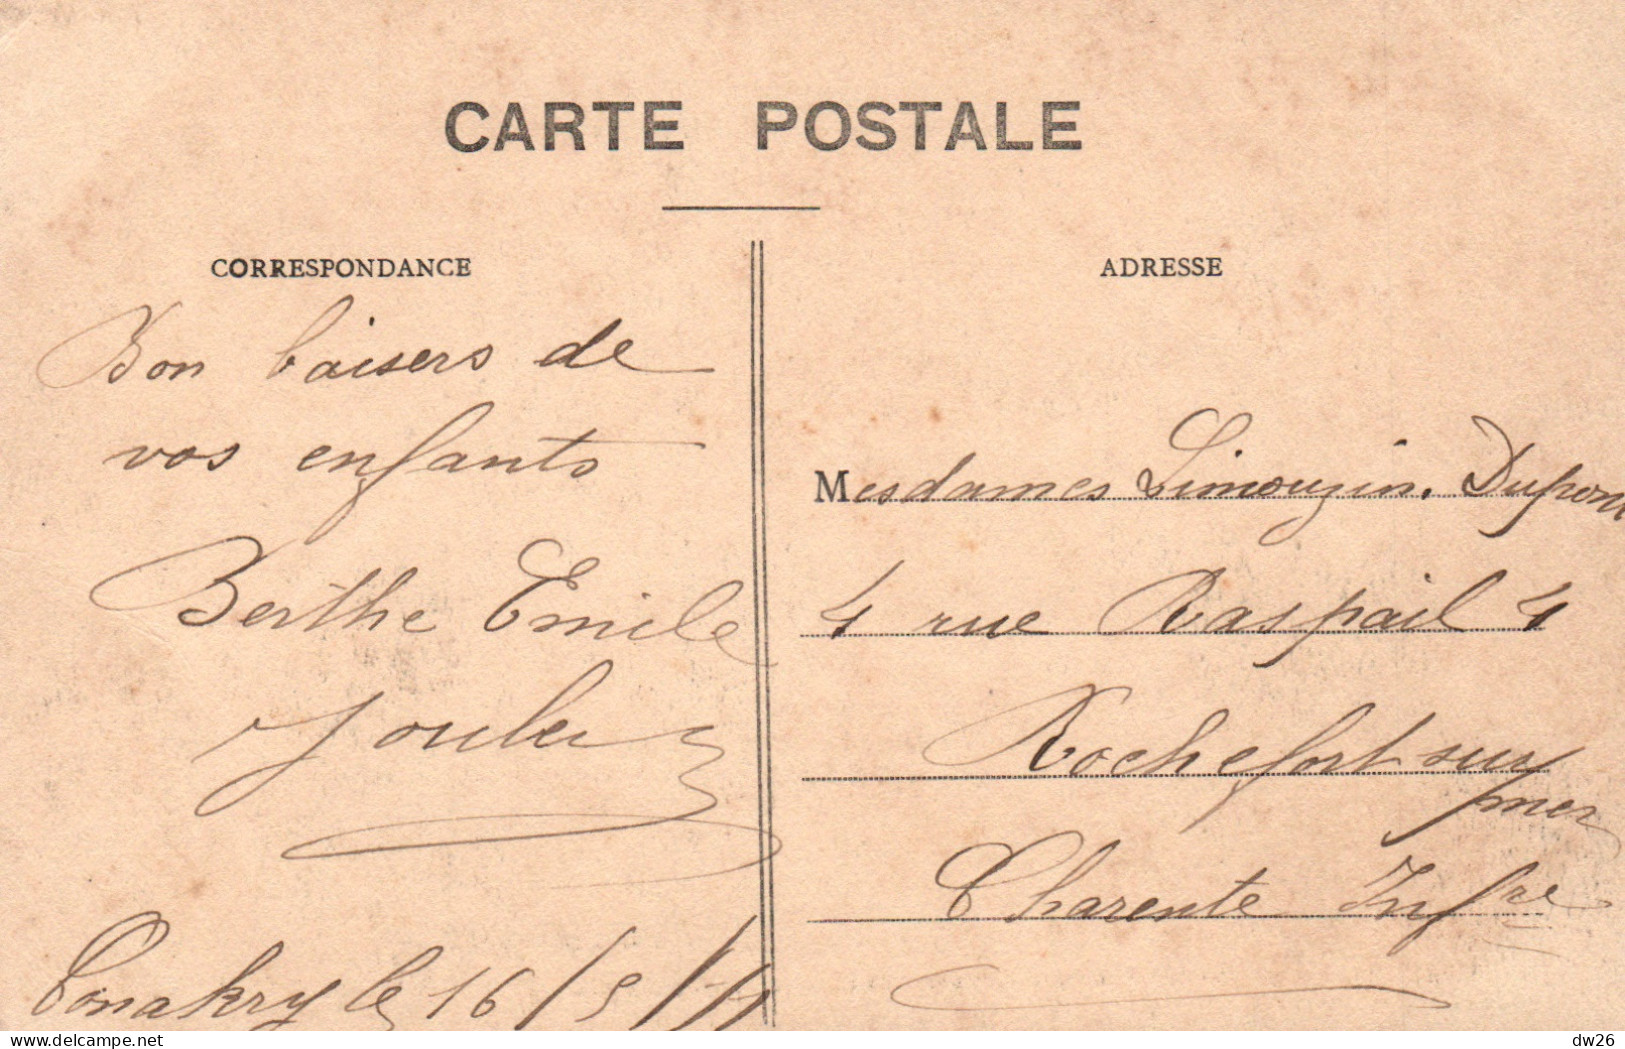 CARTE POSTALE
CORRESPONDANCE
Bon baisers de
vos enfants
Berthe Emile
Conakry le 16/5/11
ADRESSE
Mesdames Limouzin. Dupont
4 rue Raspail 4
Rochefort sur
mer
Charente Infre
delcampe.net
dw26